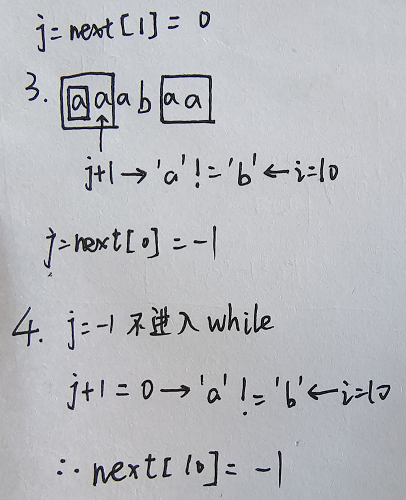 j=next[1]=0
3. aaabaa
j+1→'a'!='b'←i=10
j=next[0]=-1
4. j=-1不进入while
j+1=0→'a'!='b'←i=10
∴next[10]=-1